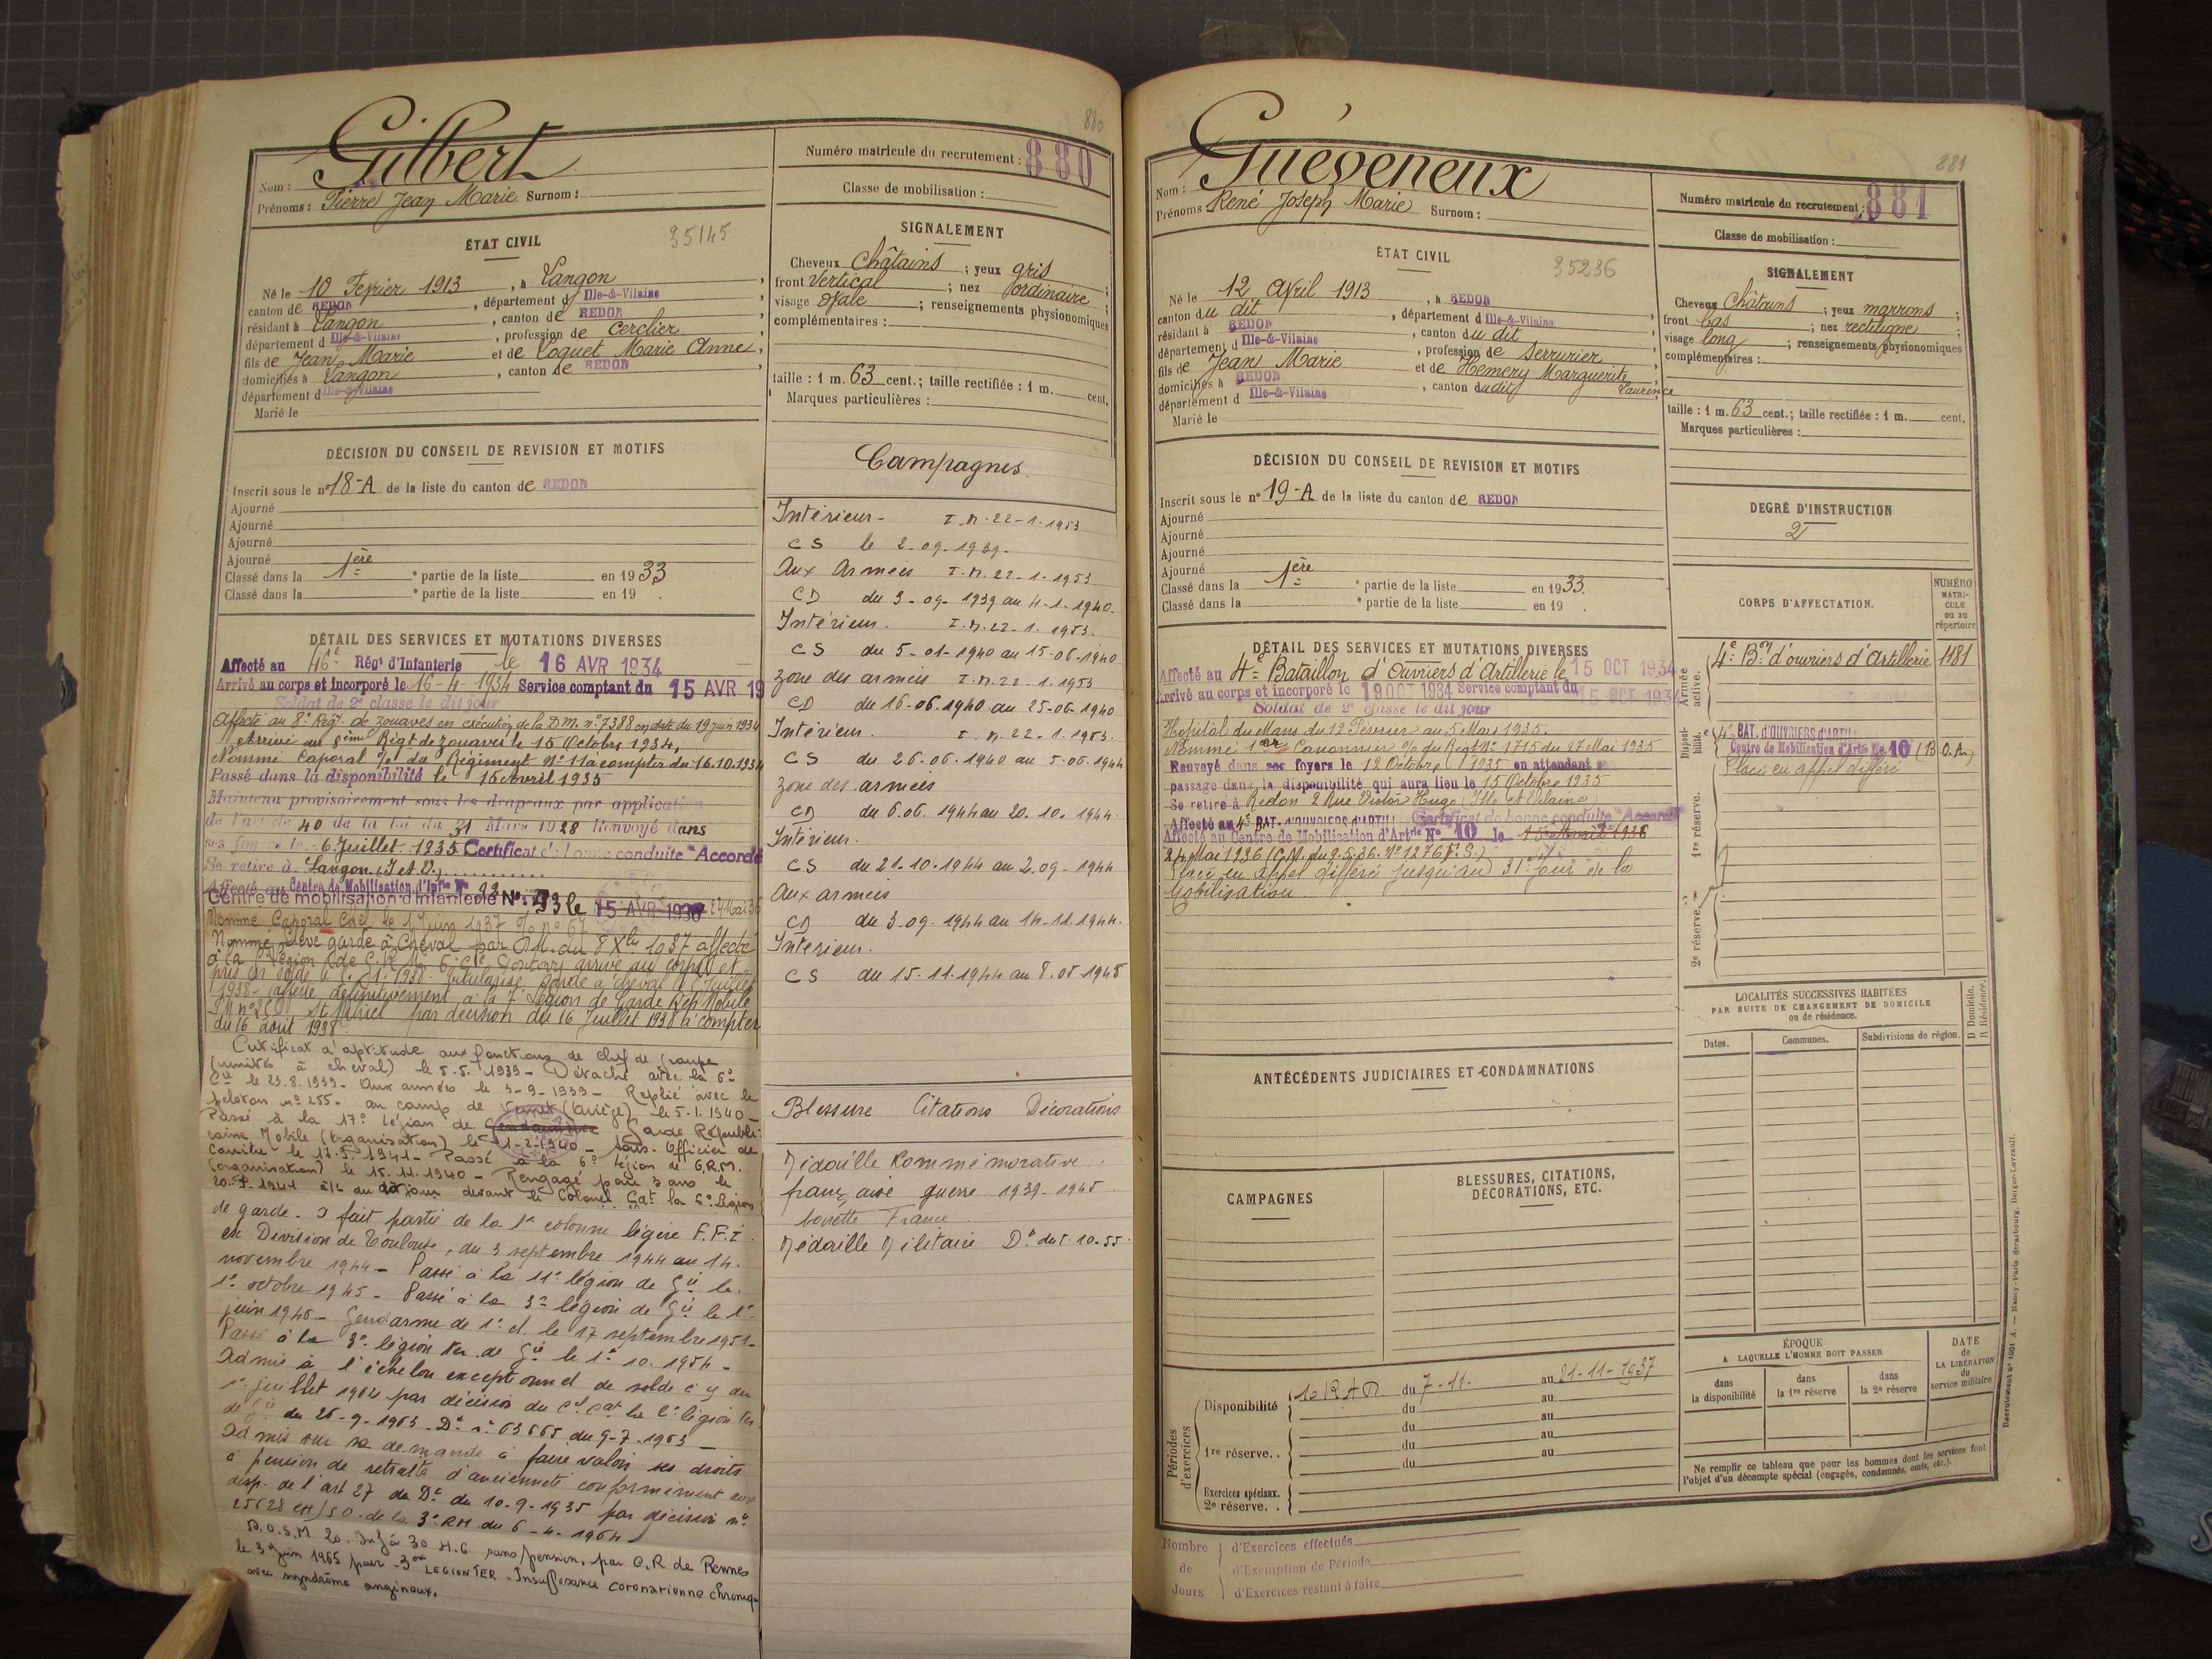 880
Gilbert
Nom :
Prénoms : Pierre Jean Marie Surnom :
Numéro matricule du recrutement : 880
Classe de mobilisation :
ÉTAT CIVIL
35145
Né le 10 Fevrier 1913, à Langon,
canton de REDON, département d Ille-&-Vilaine
résidant à Langon, canton de REDON
département d Ille-&-Vilaine, profession de Cerclier
fils de Jean Marie et de Loquet Marie Anne,
domiciliés à Langon, canton de REDON
département d Ille-&-Vilaine
Marié le
SIGNALEMENT
Cheveux Châtains ; yeux gris
front Vertical ; nez ordinaire ;
visage ovale ; renseignements physionomiques
complémentaires :
taille : 1 m. 63 cent.; taille rectifiée : 1 m. cent.
Marques particulières :
DÉCISION DU CONSEIL DE REVISION ET MOTIFS
Inscrit sous le n° 18-A de la liste du canton de REDON
Ajourné
Ajourné
Ajourné
Ajourné
Classé dans la 1ère ° partie de la liste en 1933
Classé dans la ° partie de la liste en 19 .
DÉTAIL DES SERVICES ET MUTATIONS DIVERSES
Affecté au 46e Régt d'Infanterie le 16 AVR 1934
Arrivé au corps et incorporé le 16-4-1934 Service comptant du 15 AVR 19
Soldat de 2e classe le dit jour
Affecté au 8e Régt de zouaves en exécution de la D.M. n° 7388 en date du 19 juin 1934
Arrivé au 8ème Régt de zouaves le 15 Octobre 1934,
Nommé Caporal % du Régiment N° 11 à compter du 16.10.1934
Passé dans la disponibilité le 15 Avril 1935
Maintenu provisoirement sous les drapeaux par application
de l'article 40 de la loi du 31 Mars 1928 Renvoyé dans
ses foyers le 6 Juillet 1935 Certificat de bonne conduite "Accordé
Se retire à Langon (I et V)
Affecté au Centre de Mobilisation d'Infrie N° 92
Centre de mobilisation d'infanterie N° 93 le 15 AVR 1936
Nommé Caporal Chef le 1 Juin 1937 % n° 67
Nommé Elève garde à Cheval par D.M. du 8 Xbre 1937 affecté
1938 - affecté définitivement à la 7e Légion de Garde Rép Mobile
St Mihiel par décision du 16 Juillet 1938 à compter
du 16 août 1938
Certificat d'aptitude aux fonctions de chef de Groupe
(unités à cheval) le 5.5.1939 - Détaché avec la 6e
Cie le 23.8.1939 - Aux armées le 3-9-1939 - Replié avec le
peloton n° 255 - au camp de Vernet (Ariège) le 5.1.1940 -
Passé à la 17e légion de Garde Républi-
caine Mobile (organisation) le 1-2-1940 - sous-Officier de
Carrière le 17.5.1941 - Passé à la 6e légion de G.R.M.
(organisation) le 15.11.1940 - Rengagé pour 3 ans le
devant le Colonel Cdt la 6e Légion
de garde - a fait partie de la 1e colonne légère F.F.I.
ex Division de Toulouse, du 3 septembre 1944 au 14
novembre 1944 - Passé à la 11e légion de Gie le
1er octobre 1945 - Passé à la 3e légion de Gie le 1er
juin 1946 - Gendarme de 1e cl. le 17 septembre 1951 -
Passé à la 3e légion ter de Gie le 1er 10.1954 -
Admis à l'échelon exceptionnel de solde à c du
1er juillet 1962 par décision du Cel Cdt la 3e légion ter
de Gie du 26-9-1963 - Dn n° 63665 du 9-7-1963 -
Admis sur sa demande à faire valoir ses droits
à pension de retraite d'ancienneté conformément aux
disp. de l'art 27 du Dt du 10-9-1935 par décision n°
25628 de la 3e RM du 6-4-1964
le 3 Juin 1965 pour - 3e LEGION TER - Insuffisance coronarienne chronique
avec syndrôme angineux.
Campagnes
Intérieur - I.M. 22-1-1953
CS le 2-09-1939.
Aux Armées I.M. 22-1-1953
CD du 3-09-1939 au 4-1-1940.
Intérieur. I.M. 22-1-1953.
CS du 5-01-1940 au 15-06-1940
zone des armées I.M. 22-1-1953
CD du 16-06-1940 au 25-06-1940
Intérieur. I.M. 22-1-1953.
CS du 26.06.1940 au 5.06.1944
zone des armées
CD du 6.06.1944 au 20.10.1944.
Intérieur.
CS du 21-10-1944 au 2.09-1944
aux armées
CD du 3-09-1944 au 14-11-1944.
Intérieur.
CS du 15.11.1944 au 8.05.1945
Blessure Citations Décorations
Médaille Commémorative
française guerre 1939-1945
barrette France
Médaille Militaire Dt du 5.10.55.
881
Guéveneux
Nom :
Prénoms René Joseph Marie Surnom :
Numéro matricule du recrutement : 881
Classe de mobilisation :
ÉTAT CIVIL
35236
Né le 12 Avril 1913, à REDON
canton du dit, département d Ille-&-Vilaine
résidant à REDON, canton du dit
département d Ille-&-Vilaine, profession de Serrurier
fils de Jean Marie et de Hemery Marguerite Laurence
domiciliés à REDON, canton du dit
département d Ille-&-Vilaine
Marié le
SIGNALEMENT
Cheveux Châtains ; yeux marrons ;
front bas ; nez rectiligne ;
visage long ; renseignements physionomiques
complémentaires :
taille : 1 m. 63 cent.; taille rectifiée : 1 m. cent.
Marques particulières :
DÉCISION DU CONSEIL DE REVISION ET MOTIFS
Inscrit sous le n° 19-A de la liste du canton de REDON
Ajourné
Ajourné
Ajourné
Ajourné
Classé dans la 1ère ° partie de la liste en 1933.
Classé dans la ° partie de la liste en 19 .
DEGRÉ D'INSTRUCTION
2
CORPS D'AFFECTATION.
NUMÉRO MATRI-CULE ou au répertoire
Armée active.
4e Bon d'ouvriers d'Artillerie 1181
Disponibilité.
4e BAT. D'OUVRIERS D'ARTIL
Centre de Mobilisation d'Artie No 10
Placé en appel différé
1re réserve.
2e réserve.
DÉTAIL DES SERVICES ET MUTATIONS DIVERSES
Affecté au 4e Bataillon d'Ouvriers d'Artillerie le 15 OCT 1934
Arrivé au corps et incorporé le 19 OCT 1934 Service comptant du 15 OCT 1934
Soldat de 2e classe le dit jour
Hopital du Mans du 12 Février au 5 Mars 1935.
Nommé 1er Canonnier % du Régt N° 1715 du 27 Mai 1935
Renvoyé dans ses foyers le 12 Octobre 1935 en attendant son
passage dans la disponibilité qui aura lieu le 15 Octobre 1935
Se retire à Redon 2 Rue Victor Hugo (Ille et Vilaine)
Certificat de bonne conduite "Accordé
Affecté au 4e BAT. D'OUVRIERS D'ARTIL
Affecté au Centre de Mobilisation d'Artrie No 10 le
24 Mai 1936 (C.M. du 9.5.36. N° 1276 F.S.)
Placé en appel différé jusqu'au 31e jour de la
Mobilisation.
LOCALITÉS SUCCESSIVES HABITÉES
PAR SUITE DE CHANGEMENT DE DOMICILE
ou de résidence.
Dates. Communes. Subdivisions de région. D Domicile. R Résidence.
ANTÉCÉDENTS JUDICIAIRES ET CONDAMNATIONS
CAMPAGNES
BLESSURES, CITATIONS,
DÉCORATIONS, ETC.
ÉPOQUE
A LAQUELLE L'HOMME DOIT PASSER
dans la disponibilité
dans la 1re réserve
dans la 2e réserve
DATE de LA LIBÉRATION du service militaire
Périodes d'exercices
Disponibilité 10 RAD du 7-11- au 21-11-1937
du au
du au
1re réserve. . du au
du au
Exercices spéciaux.
2e réserve. .
Ne remplir ce tableau que pour les hommes dont les services font
l'objet d'un décompte spécial (engagés, condamnés, omis, etc.).
Nombre de Jours
d'Exercices effectués
d'Exemption de Période
d'Exercices restant à faire